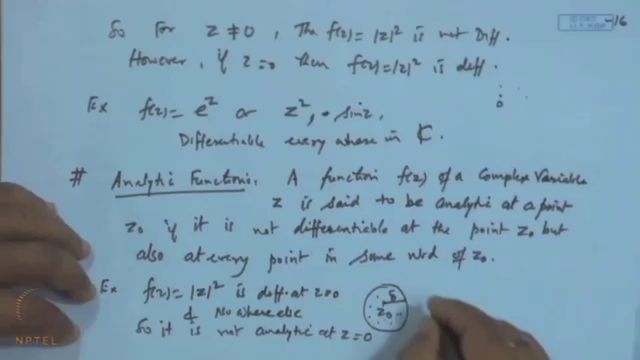 -16
So For z ≠ 0, The f(z) = |z|² is not Diff.
However, if z = 0 then f(z) = |z|² is diff.
Ex f(z) = e^z or z², sin z,
Differentiable every where in ℂ.
# Analytic Function: A function f(z) of a Complex Variable
z is said to be analytic at a point
z₀ if it is not differentiable at the point z₀ but
also at every point in some nbd of z₀.
Ex f(z) = |z|² is diff. at z=0
& No where else
So it is not analytic at z=0
δ
z₀
NPTEL